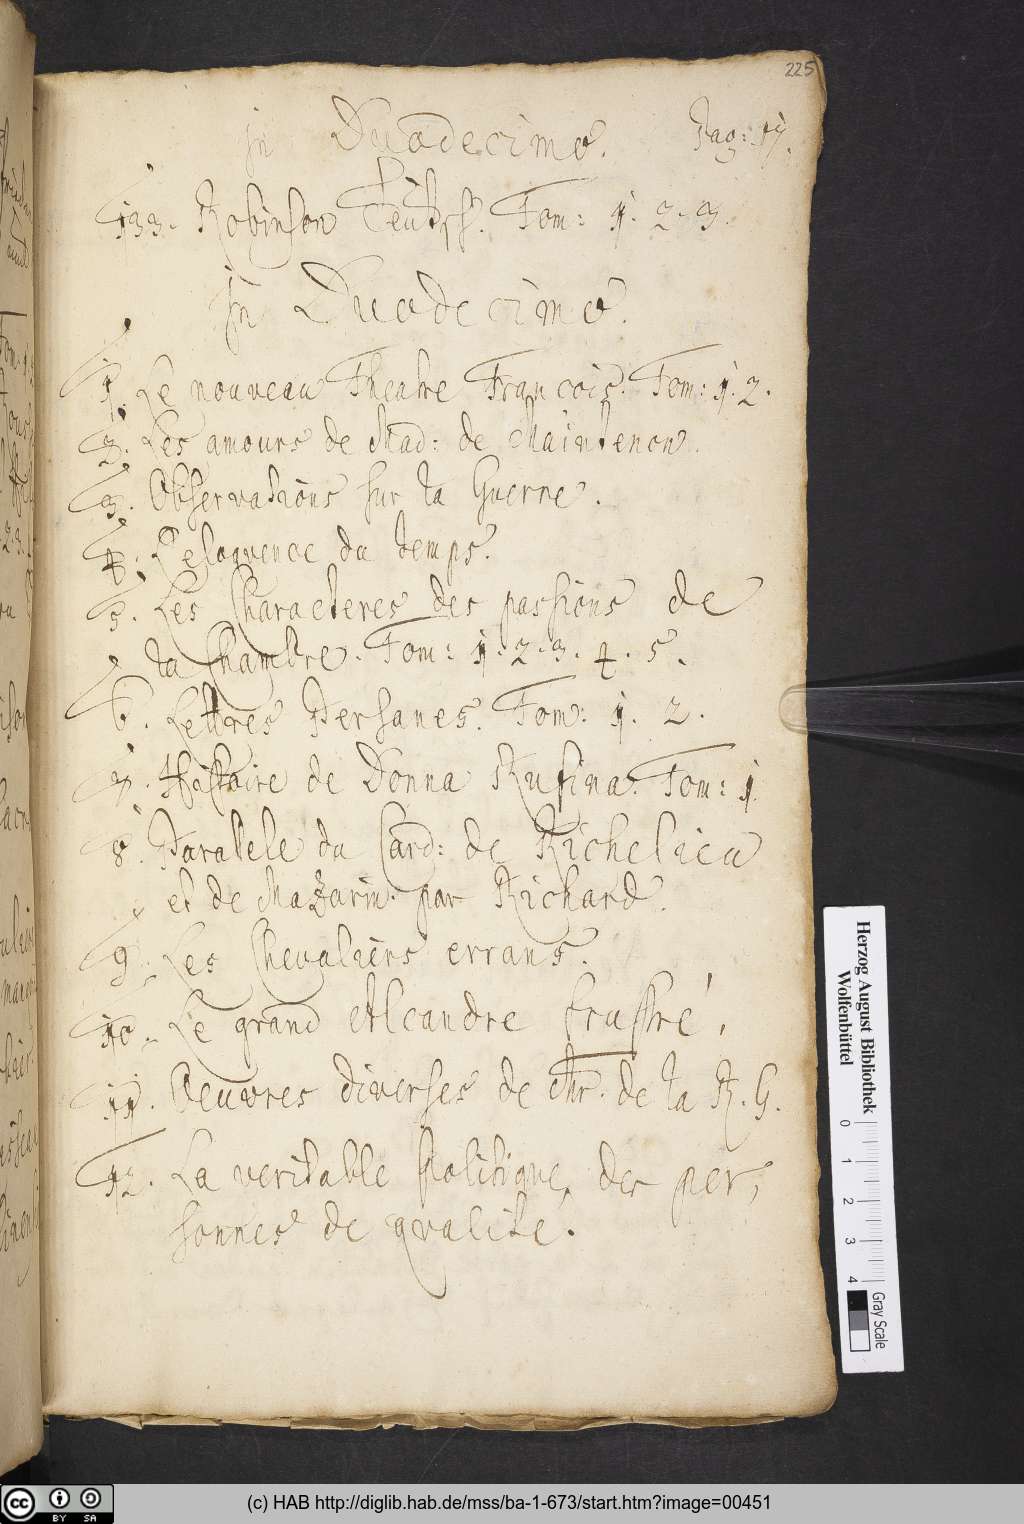 225
in Duodecimo. Pag: 17.
133. Robinson Teütsch. Tom: 1. 2. 3.
in Duodecimo.
1. Le nouveau Theatre Francois. Tom: 1. 2.
2. Les amours de Mad: de Maintenon.
3. Observations sur la Guerre.
4. L'eloquence du temps.
5. Les Characteres des passions de
la Chambre. Tom: 1. 2. 3. 4. 5.
6. Lettres Persanes. Tom: 1. 2.
7. Histoire de Donna Rufina. Tom: 1.
8. Paralele du Card: de Richelieu
et de Mazarin. par Richard.
9. Les Chevaliers errans.
10. Le grand Alcandre frustré.
11. Oeuvres diverses de Mr. de la R. G.
12. La veritable Politique des per,
sonnes de qvalité.
Herzog August Bibliothek
Wolfenbüttel
0 1 2 3 4
Gray Scale
(c) HAB http://diglib.hab.de/mss/ba-1-673/start.htm?image=00451
CC BY SA